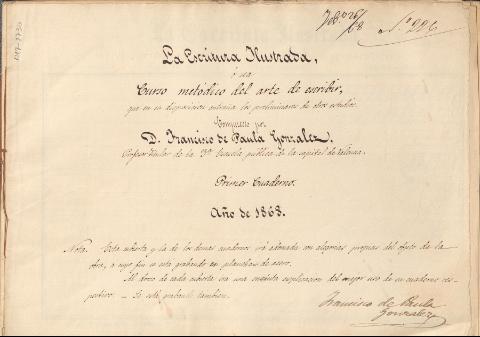 Feb.o 26/68 N.o 226
La Escritura Ilustrada,
ó sea
Curso metódico del arte de escribir,
que en su disposicion entraña los preliminares de otros estudios.
Compuesto por
D. Francisco de Paula Gonzalez.
Profesor titular de la 3ª Escuela pública de la capital de
Primer Cuaderno.
Año de 1868.
Nota. Esta cubierta y la de los demas cuadernos irá adornada con alegorias propias del objeto de la
obra, a cuyo fin se está grabando en planchas de acero.
Al dorso de cada cubierta va una sucinta esplicacion del mejor uso de su cuaderno res-
pectivo. Se está grabando tambien.
Francisco de Paula
Gonzalez